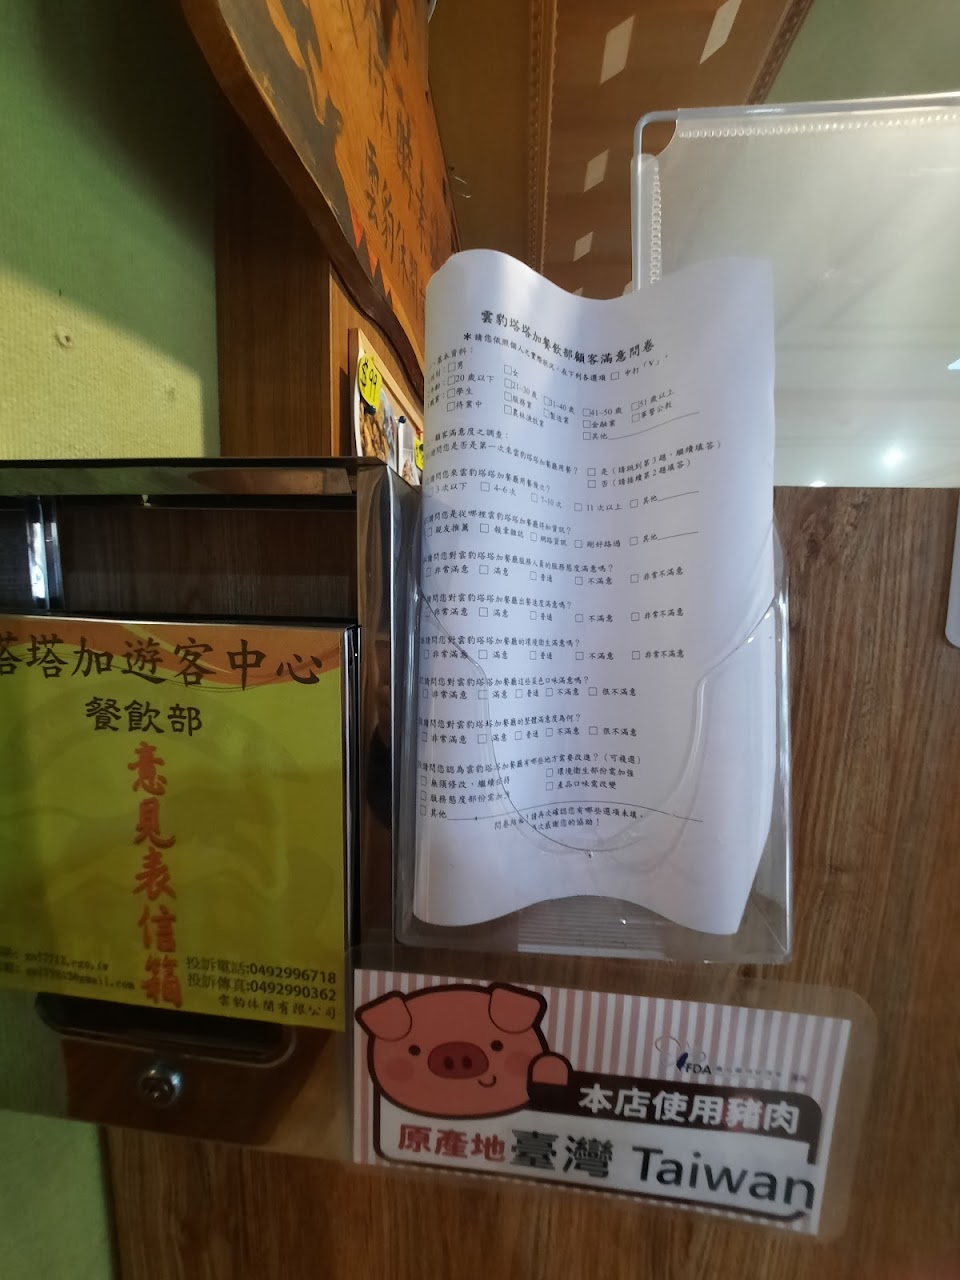 雲豹休閒
$99
雲豹塔塔加餐飲部顧客滿意問卷
＊請您依照個人之實際狀況，在下列各選項 □ 中打「V」。
基本資料：
□男 □女
□20 歲以下 □21~30 歲 □31~40 歲 □41~50 歲 □51 歲以上
□學生 □服務業 □製造業 □金融業 □軍警公教
□待業中 □農林漁牧業 □其他
顧客滿意度之調查：
請問您是否是第一次來雲豹塔塔加餐廳用餐？ □ 是（請跳到第 3 題，繼續填答）
□ 否（請接續第 2 題填答）
請問您來雲豹塔塔加餐廳用餐幾次？
3 次以下 □ 4-6 次 □ 7-10 次 □ 11 次以上 □ 其他
請問您是從哪裡雲豹塔塔加餐廳得知資訊？
□ 親友推薦 □ 報章雜誌 □ 網路資訊 □ 剛好路過 □ 其他
請問您對雲豹塔塔加餐廳服務人員的服務態度滿意嗎？
□ 非常滿意 □ 滿意 □ 普通 □ 不滿意 □ 非常不滿意
請問您對雲豹塔塔加餐廳出餐速度滿意嗎？
□ 非常滿意 □ 滿意 □ 普通 □ 不滿意 □ 非常不滿意
請問您對雲豹塔塔加餐廳的環境衛生滿意嗎？
□ 非常滿意 □ 滿意 □ 普通 □ 不滿意 □ 非常不滿意
請問您對雲豹塔塔加餐廳這些菜色口味滿意嗎？
□ 非常滿意 □ 滿意 □ 普通 □ 不滿意 □ 很不滿意
請問您對雲豹塔塔加餐廳的整體滿意度為何？
□ 非常滿意 □ 滿意 □ 普通 □ 不滿意 □ 很不滿意
請問您認為雲豹塔塔加餐廳有哪些地方需要改進？（可複選）
□ 無須修改，繼續保持 □ 環境衛生部份需加強
□ 服務態度部份需加強 □ 產品口味需改變
□ 其他
問卷結束！請再次確認您有哪些選項未填，
再次感謝您的協助！
塔塔加遊客中心
餐飲部
意見表信箱
投訴電話:0492996718
投訴傳真:0492990362
雲豹休閒有限公司
FDA
本店使用豬肉
原產地臺灣 Taiwan